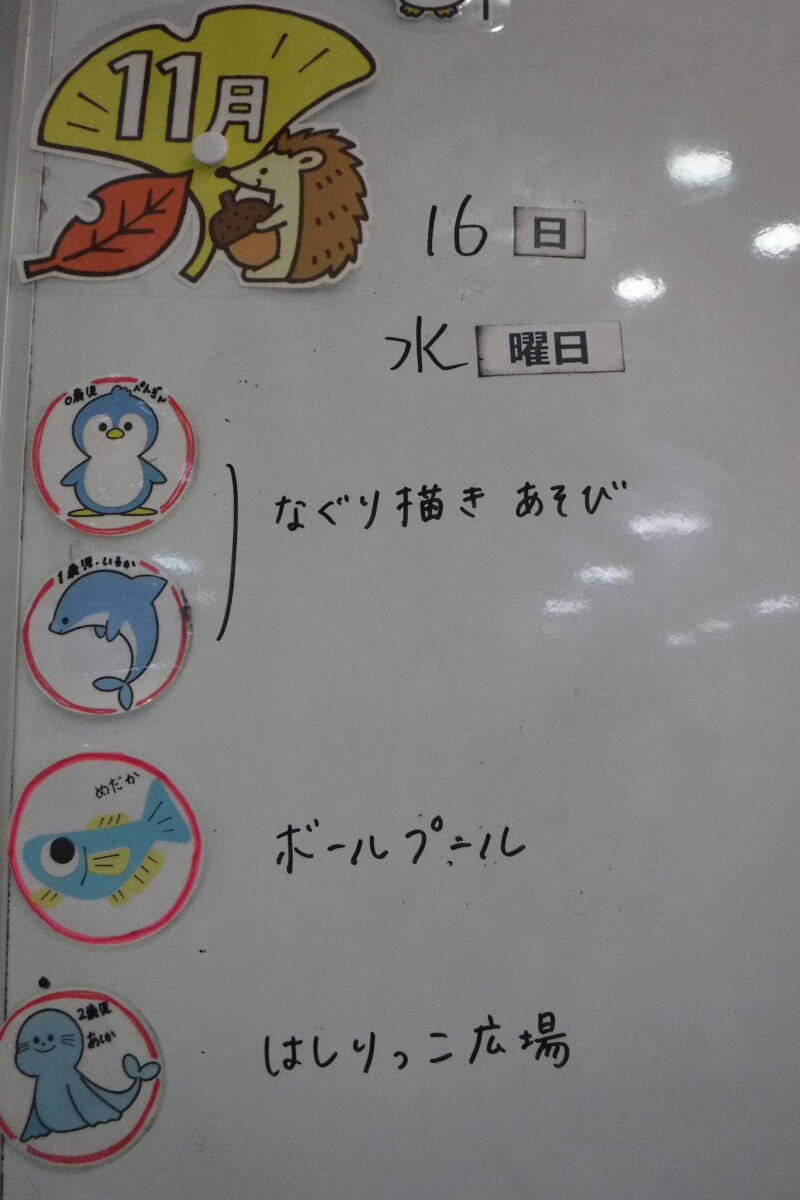 11月
16 日
水 曜日
0歳児 ぺんぎん
なぐり描き あそび
1歳児・いるか
めだか
ボールプール
2歳児
あしか
はしりっこ広場